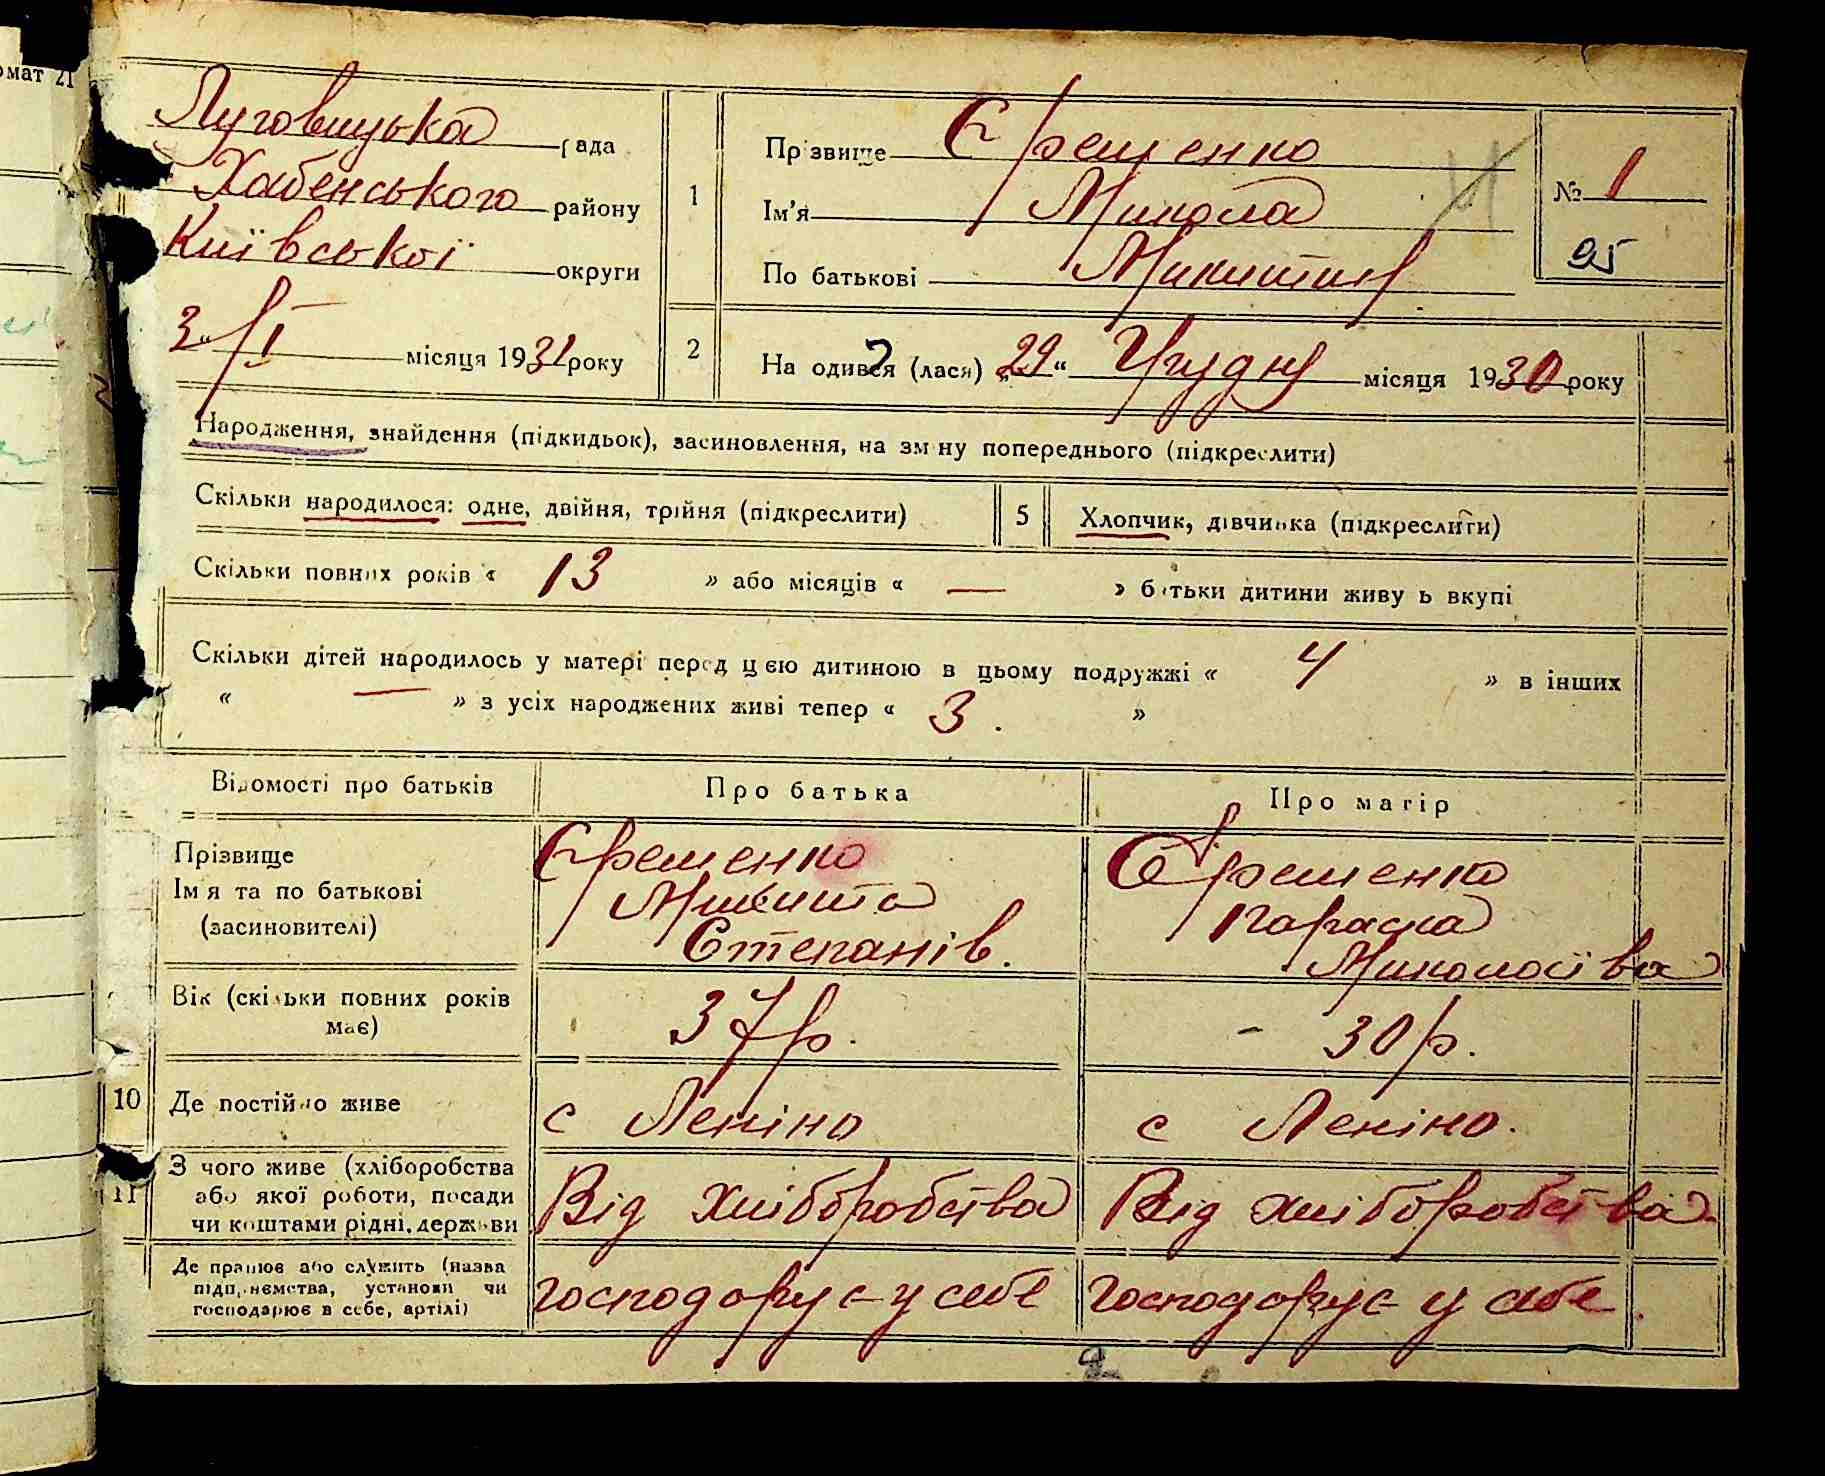 омат 21
Луговицька рада
Хабенського району
Київської округи
3 „ І місяця 1931 року
1
Прізвище Єрещенко
Ім'я Микола
По батькові Микитин
№ 1
95
2
Народився (лася) „29“ Грудня місяця 1930 року
Народження, знайдення (підкидьок), засиновлення, на зміну попереднього (підкреслити)
Скільки народилося: одне, двійня, трійня (підкреслити)
5
Хлопчик, дівчинка (підкреслити)
Скільки повних років « 13 » або місяців « — » батьки дитини живуть вкупі
Скільки дітей народилось у матері перед цією дитиною в цьому подружжі « 4 » в інших
« — » з усіх народжених живі тепер « 3 . »
Відомості про батьків
Про батька
Про матір
Прізвище
Ім'я та по батькові
(засиновителі)
Єрещенко
Микита
Степанів.
Єрещенко
Параска
Миколаївна
Вік (скільки повних років
має)
37 р.
30 р.
10
Де постійно живе
с Леніно
с Леніно.
11
З чого живе (хліборобства
або якої роботи, посади
чи коштами рідні, держави
Від хліборобства
Від хліборобства.
Де працює або служить (назва
підприємства, установи чи
господарює в себе, артілі)
господарує у себе
господарує у себе